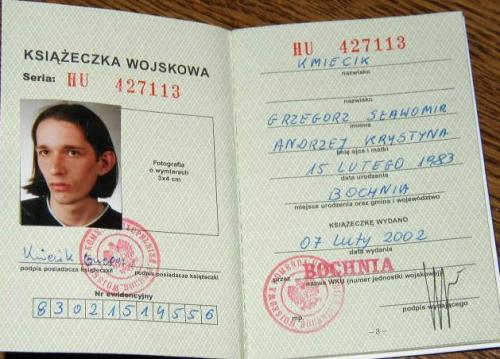 KSIĄŻECZKA WOJSKOWA
Seria: HU 427113
Fotografie
o wymiarach
3x4 cm
podpis posiadacza książeczki
podpis posiadacza książeczki
Nr ewidencyjny
83021514556
HU 427113
KMIECIK
nazwisko
nazwisko
GRZEGORZ SŁAWOMIR
imiona
ANDRZEJ KRYSTYNA
imię ojca i matki
15 LUTEGO 1983
data urodzenia
BOCHNIA
miejsce urodzenia oraz gmina i województwo
KSIĄŻECZKĘ WYDANO
07 Luty 2002
data wydania
BOCHNIA
przez nazwa WKU (numer jednostki wojskowej)
mp. podpis wydającego
– 3 –